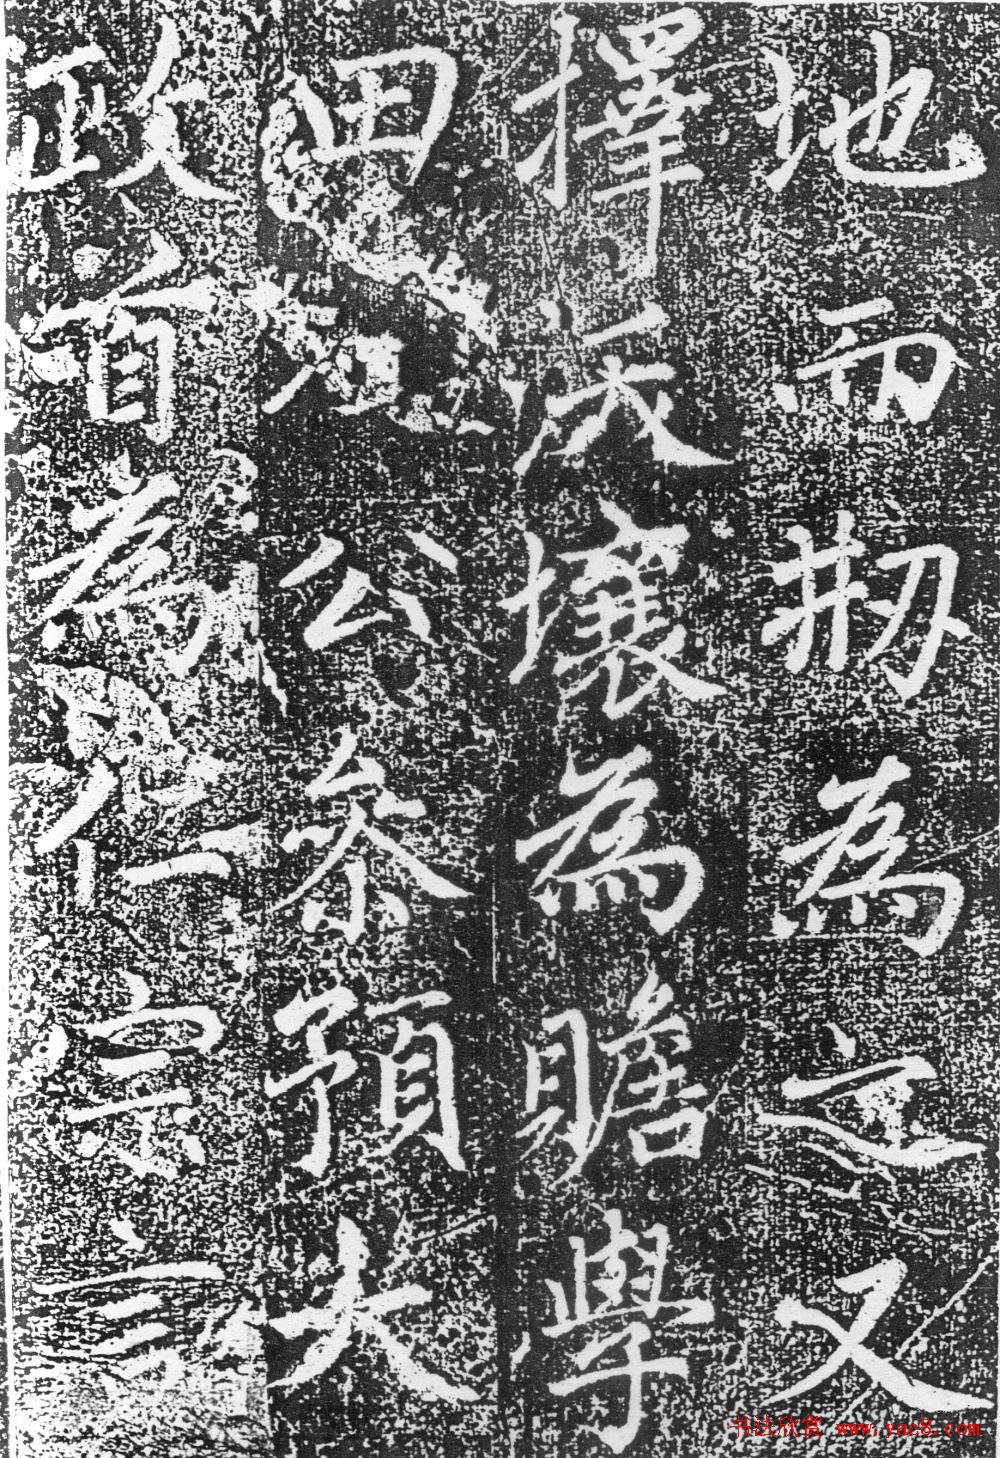 地而刱為之又
擇沃壤為贍學
田公參預大
政首為仁宗言
书法欣赏 www.yac8.com